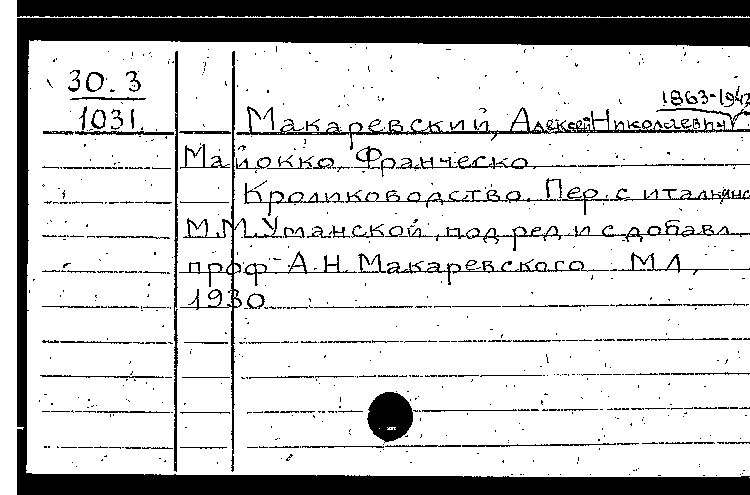 30.3
1031
1863-1942
Макаревский, Алексей Николаевич
Майокко, Франческо.
Кролиководство. Пер. с итальянс
М.М.Уманской, под ред и с добавл
проф А.Н. Макаревского, М Л,
1930